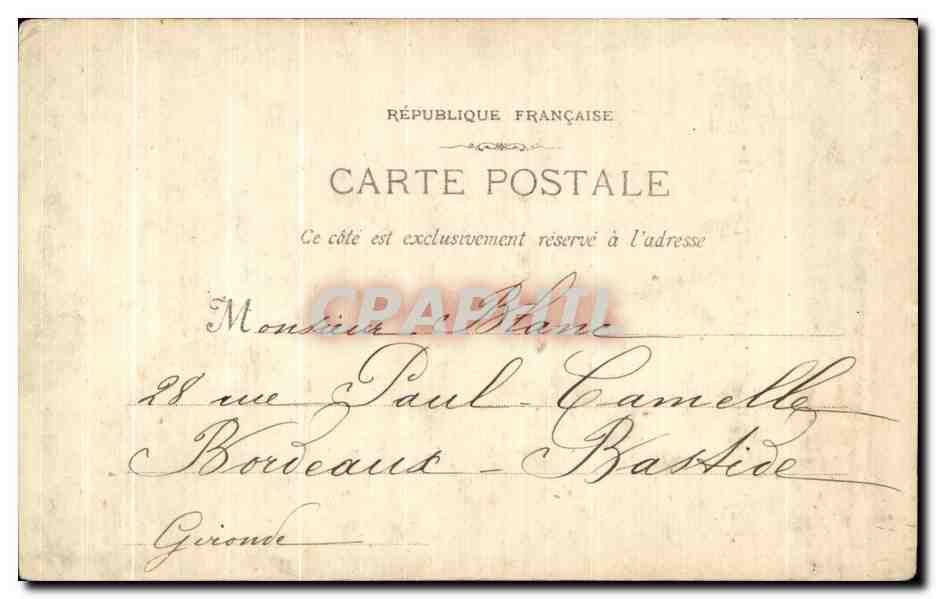 RÉPUBLIQUE FRANÇAISE
CARTE POSTALE
Ce côté est exclusivement réservé à l'adresse
CPAPHIL
Monsieur Blanc
28 rue Paul Camelle
Bordeaux - Bastide
Gironde